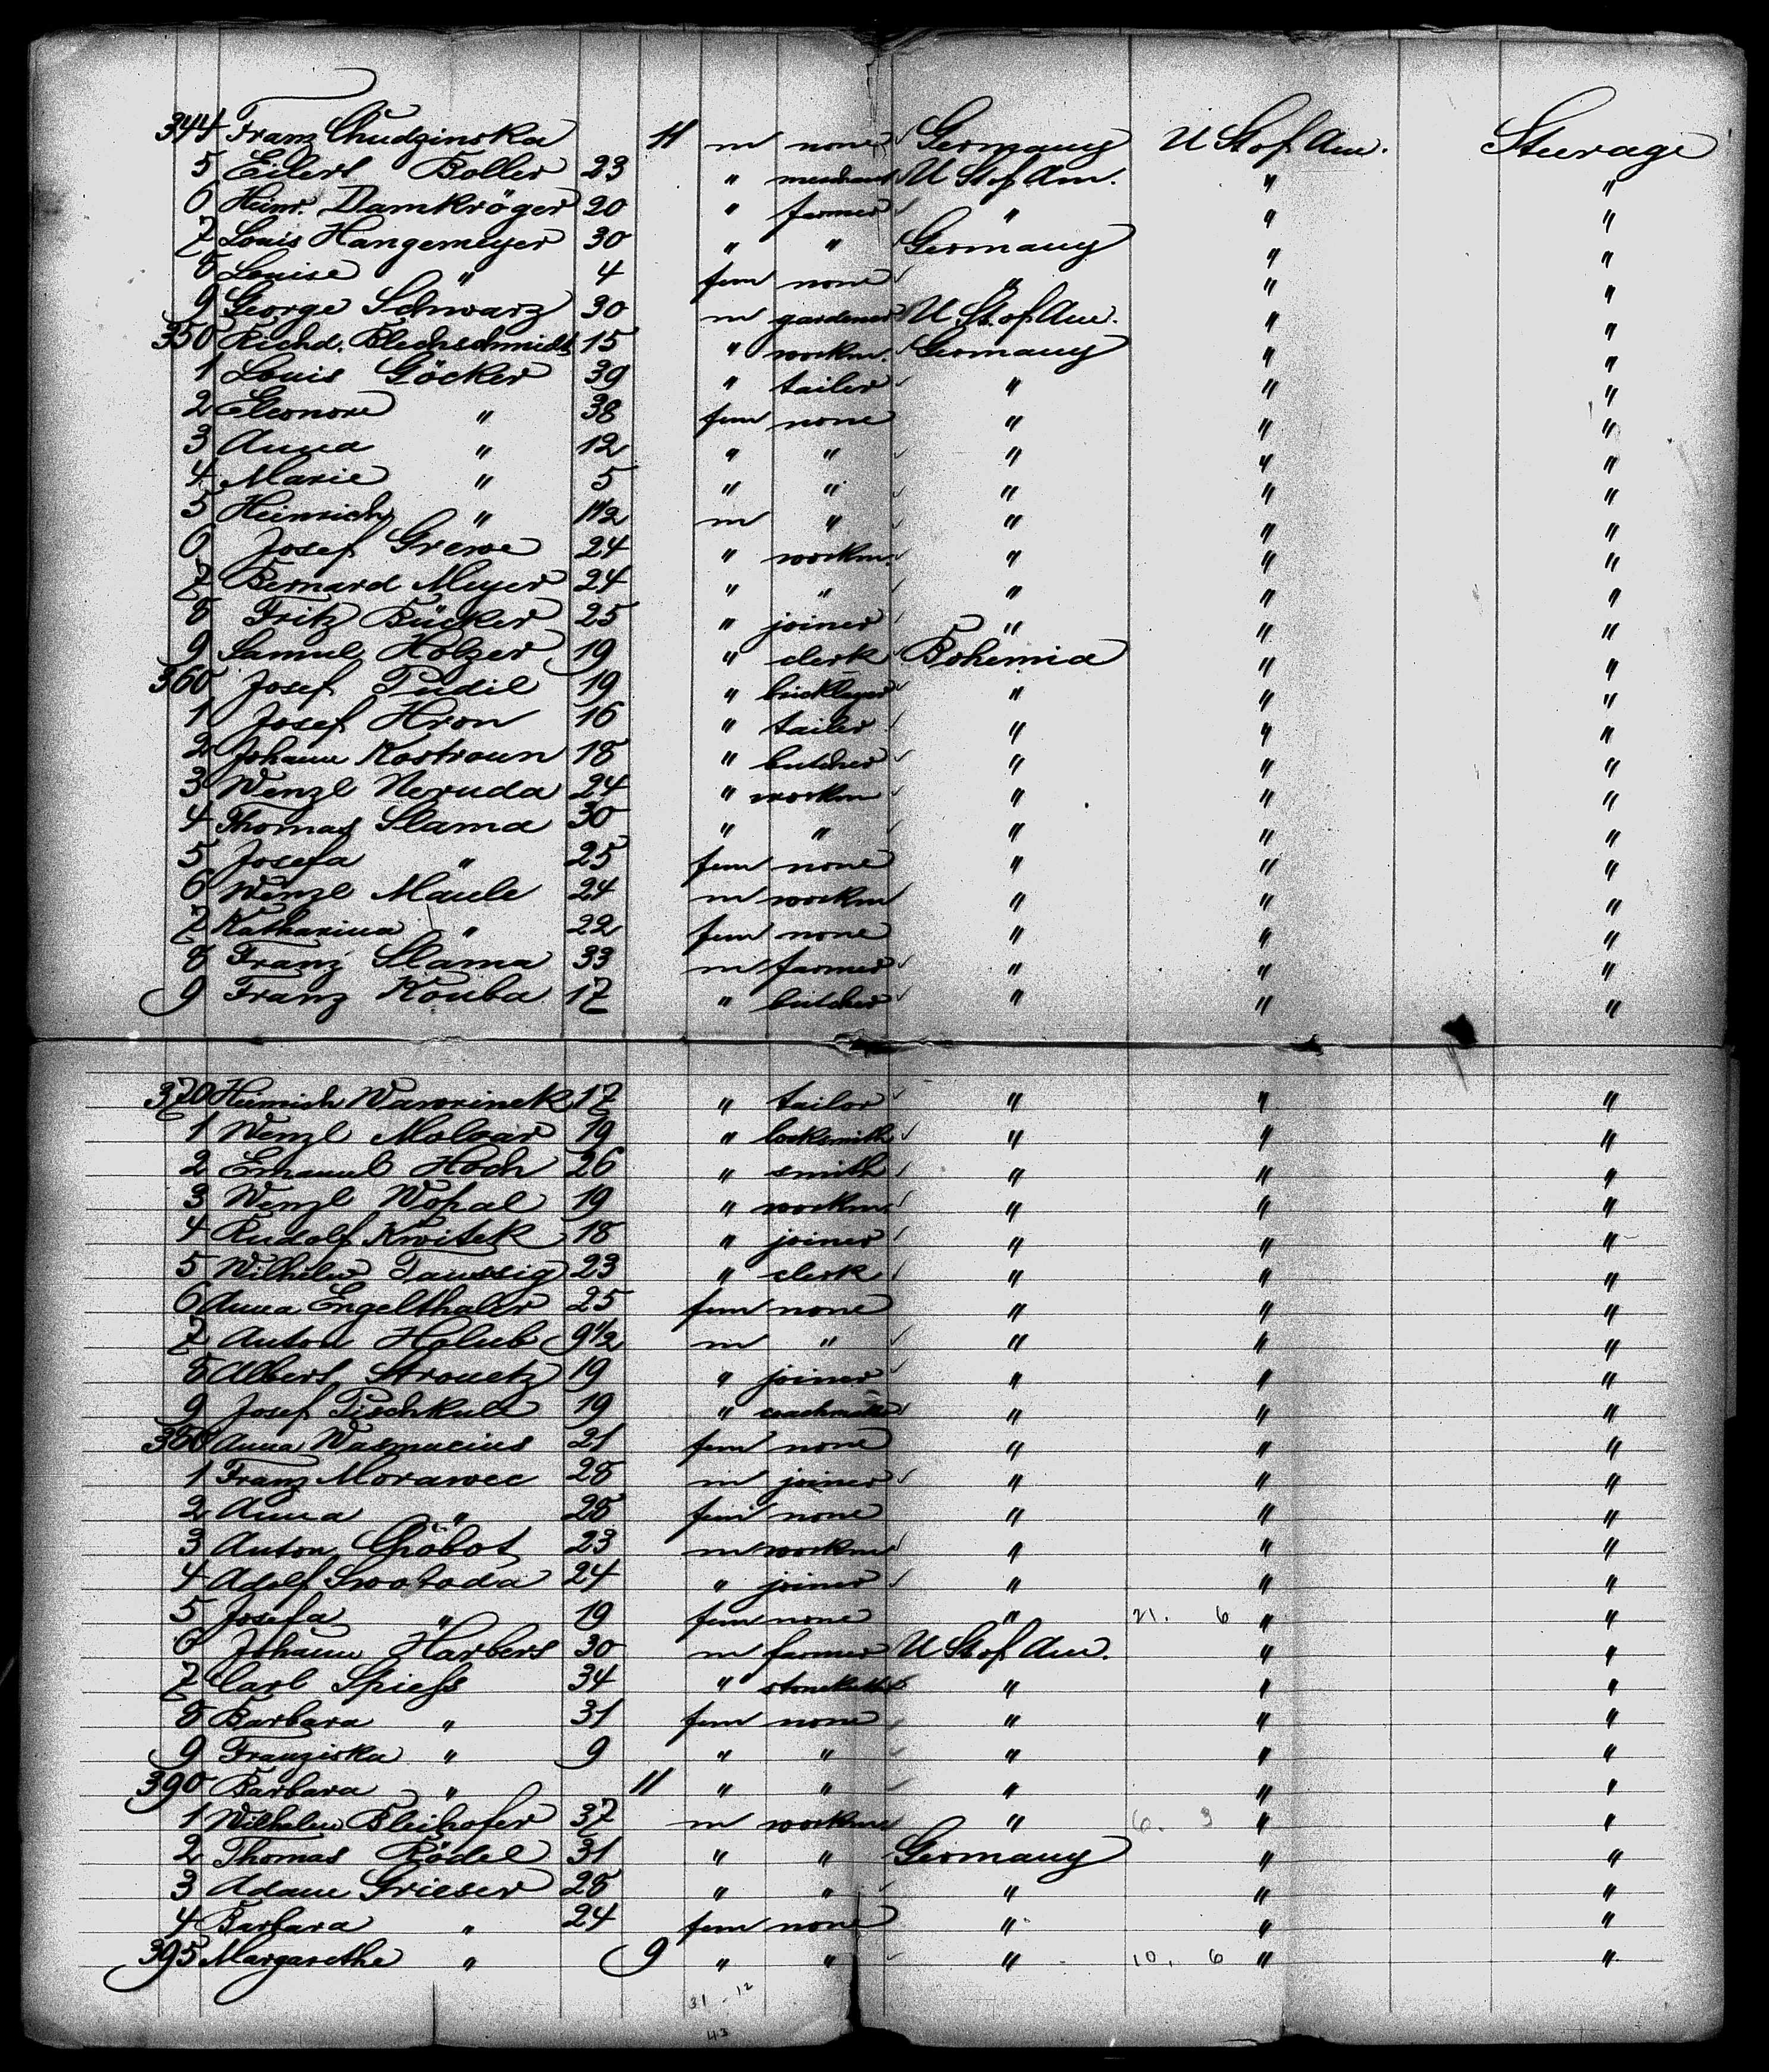 344 Franz Chudzinska 11 m none Germany U St of Am. Steerage
5 Eilert Boller 23 " merchant U St of Am. " "
6 Heinr. Damkröger 20 " farmer " " "
7 Louis Hangemeyer 30 " " Germany " "
8 Louise " 4 fem none " " "
9 George Schwarz 30 m gardener U St. of Am. " "
350 Richd. Blechschmidt 15 " workm. Germany " "
1 Louis Göcker 39 " tailer " " "
2 Eleonore " 38 fem none " " "
3 Anna " 12 " " " " "
4 Marie " 5 " " " " "
5 Heinrich " 11/2 m " " " "
6 Josef Grewe 24 " workm. " " "
7 Bernard Meyer 24 " " " " "
8 Fritz Bücker 25 " joiner " " "
9 Samuel Holzer 19 " clerk Bohemia " "
360 Josef Pudil 19 " bricklayer " " "
1 Josef Hron 16 " tailer " " "
2 Johann Kostroun 18 " butcher " " "
3 Wenzl Neruda 24 " workm " " "
4 Thomas Slama 30 " " " " "
5 Josefa " 25 fem none " " "
6 Wenzl Maule 24 m workm " " "
7 Katharina " 22 fem none " " "
8 Franz Slama 33 m farmer " " "
9 Franz Kouba 17 " butcher " " "
370 Heinrich Wawrinek 17 " tailor " " "
1 Wenzl Molvar 19 " locksmith " " "
2 Emanuel Hoch 26 " smith " " "
3 Wenzl Wopal 19 " workm. " " "
4 Rudolf Kwitek 18 " joiner " " "
5 Wilhelm Taussig 23 " clerk " " "
6 Anna Engelthaler 25 fem none " " "
7 Anton Holub 9 1/2 m " " " "
8 Albert Strouetz 19 " joiner " " "
9 Josef 19 " " " "
380 Anna Wasmucius 21 fem none " " "
1 Franz Morawec 28 m joiner " " "
2 Anna " 28 fem none " " "
3 Anton 23 m workm " " "
4 Adolf Swoboda 24 " joiner " " "
5 Josefa " 19 fem none " 21. 6 " "
6 Johann Harbers 30 m farmer U St of Am. " "
7 Carl Spiess 34 " " " "
8 Barbara " 31 fem none " " "
9 Franziska " 9 " " " " "
390 Barbara " 11 " " " " "
1 Wilhelm Bleihofer 37 m workm " 6. 3 " "
2 Thomas Rödel 31 " " Germany " "
3 Adam Grieser 28 " " " " "
4 Barbara " 24 fem none " " "
395 Margarethe " 9 " " " 10. 6 " "
31 - 12
43